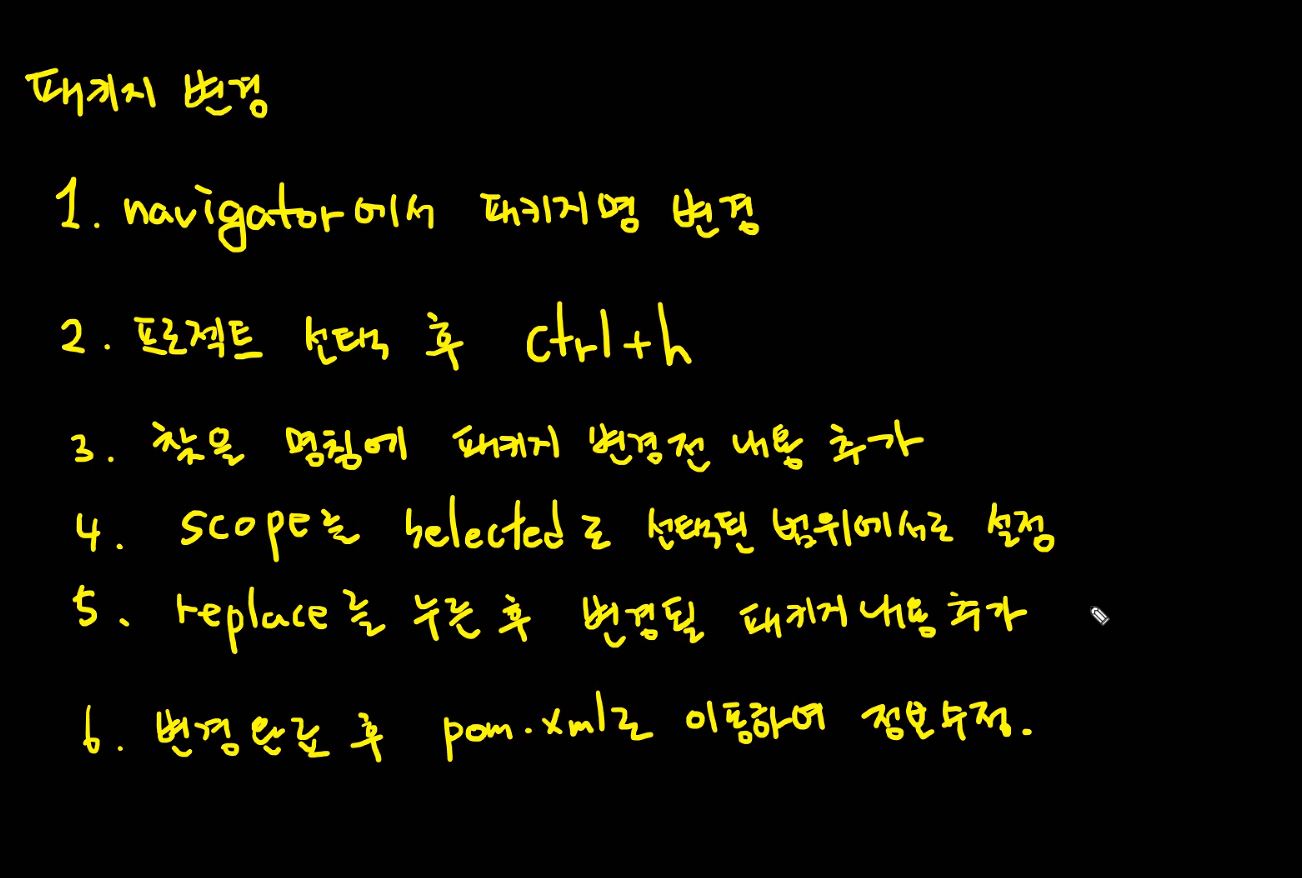 패키지 변경
1. navigator에서 패키지명 변경
2. 프로젝트 선택 후 ctrl+h
3. 찾을 명칭에 패키지 변경전 내용 추가
4. scope를 selected로 선택된 범위에서로 설정
5. replace를 누른후 변경될 패키지내용추가
6. 변경완료 후 pom.xml로 이동하여 정보수정.